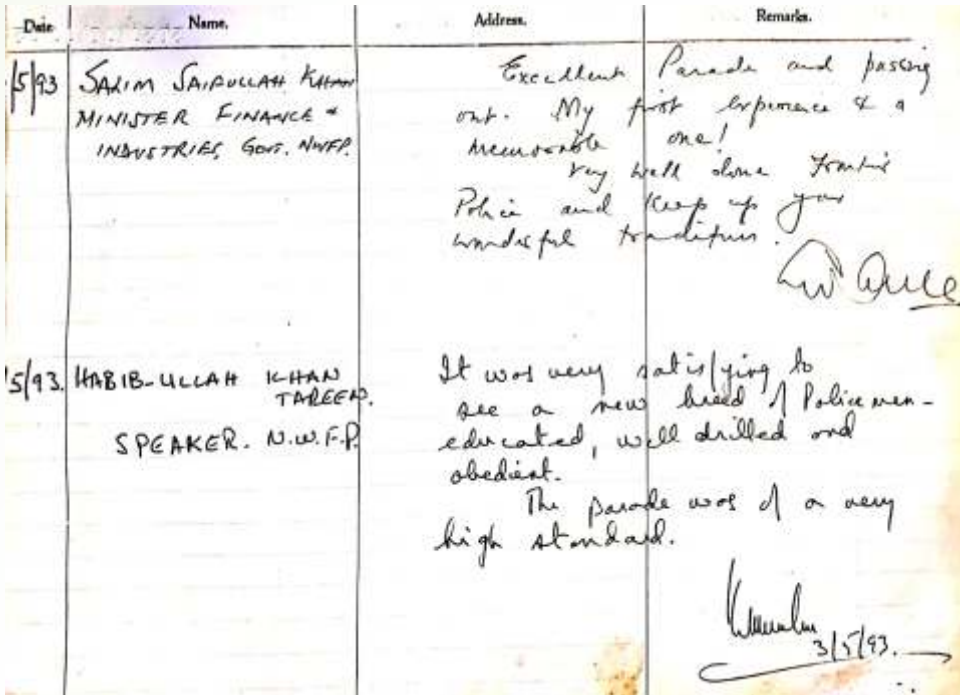 Date Name. Address. Remarks.
/5/93 SALIM SAIFULLAH KHAN
MINISTER FINANCE &
INDUSTRIES, GOVT. NWFP.
Excellent Parade and passing
out. My first experience & a
memorable one!
Very well done Frontier
Police and keep up your
wonderful traditions.
5/93. HABIB-ULLAH KHAN
TAREEN.
SPEAKER. N.W.F.P.
It was very satisfying to
see a new breed of Policemen-
educated, well drilled and
obedient.
The parade was of a very
high standard.
3/5/93.